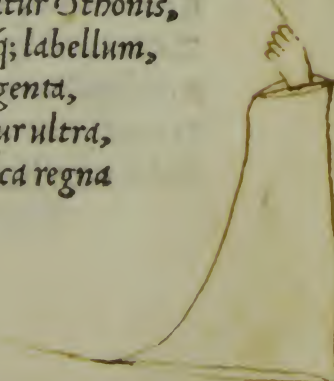 tur Othonis,
q́; labellum,
genta,
ur ultra,
ca regna